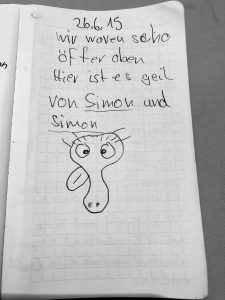 26.6.15
wir waren scho
öffter oben
Hier ist es geil
von Simon und
Simon